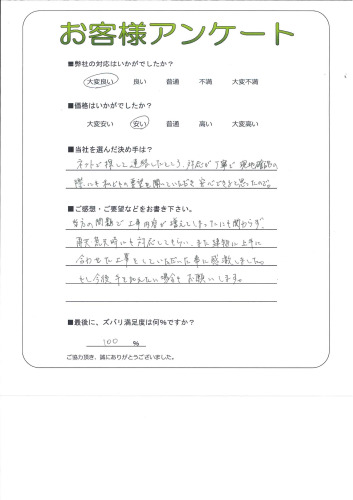 お客様アンケート
■弊社の対応はいかがでしたか？
大変良い 良い 普通 不満 大変不満
■価格はいかがでしたか？
大変安い 安い 普通 高い 大変高い
■当社を選んだ決め手は？
ネットで探して連絡したところ、対応が丁寧で現地確認の
際にも私どもの要望を聞いていただき安心できると思ったので。
■ご感想・ご要望などをお書き下さい。
当方の問題で工事内容が増えてしまったにも関わらず、
再見積時にも対応してもらい、また建物に上手に
合わせた工事をしていただいた事に感激しました。
もし今後手を加えたい場合もお願いします。
■最後に、ズバリ満足度は何％ですか？
100 ％
ご協力頂き、誠にありがとうございました。